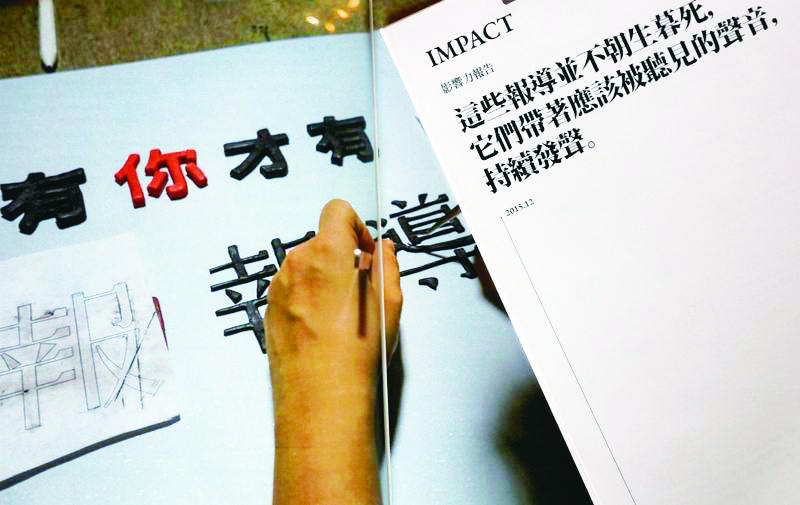 IMPACT
影響力報告
這些報導並不朝生暮死，
它們帶著應該被聽見的聲音，
持續發聲。
2015.12
有你才有
報導
報